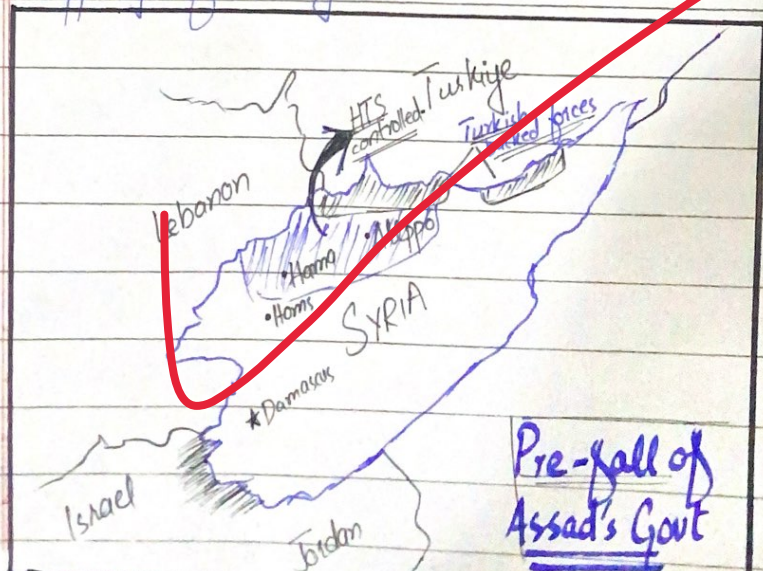 HTS
controlled
Tuskiye
Turkish
backed forces
Lebanon
Aleppo
Hama
Homs
SYRIA
Damascus
Israel
Jordan
Pre-fall of
Assad's Govt